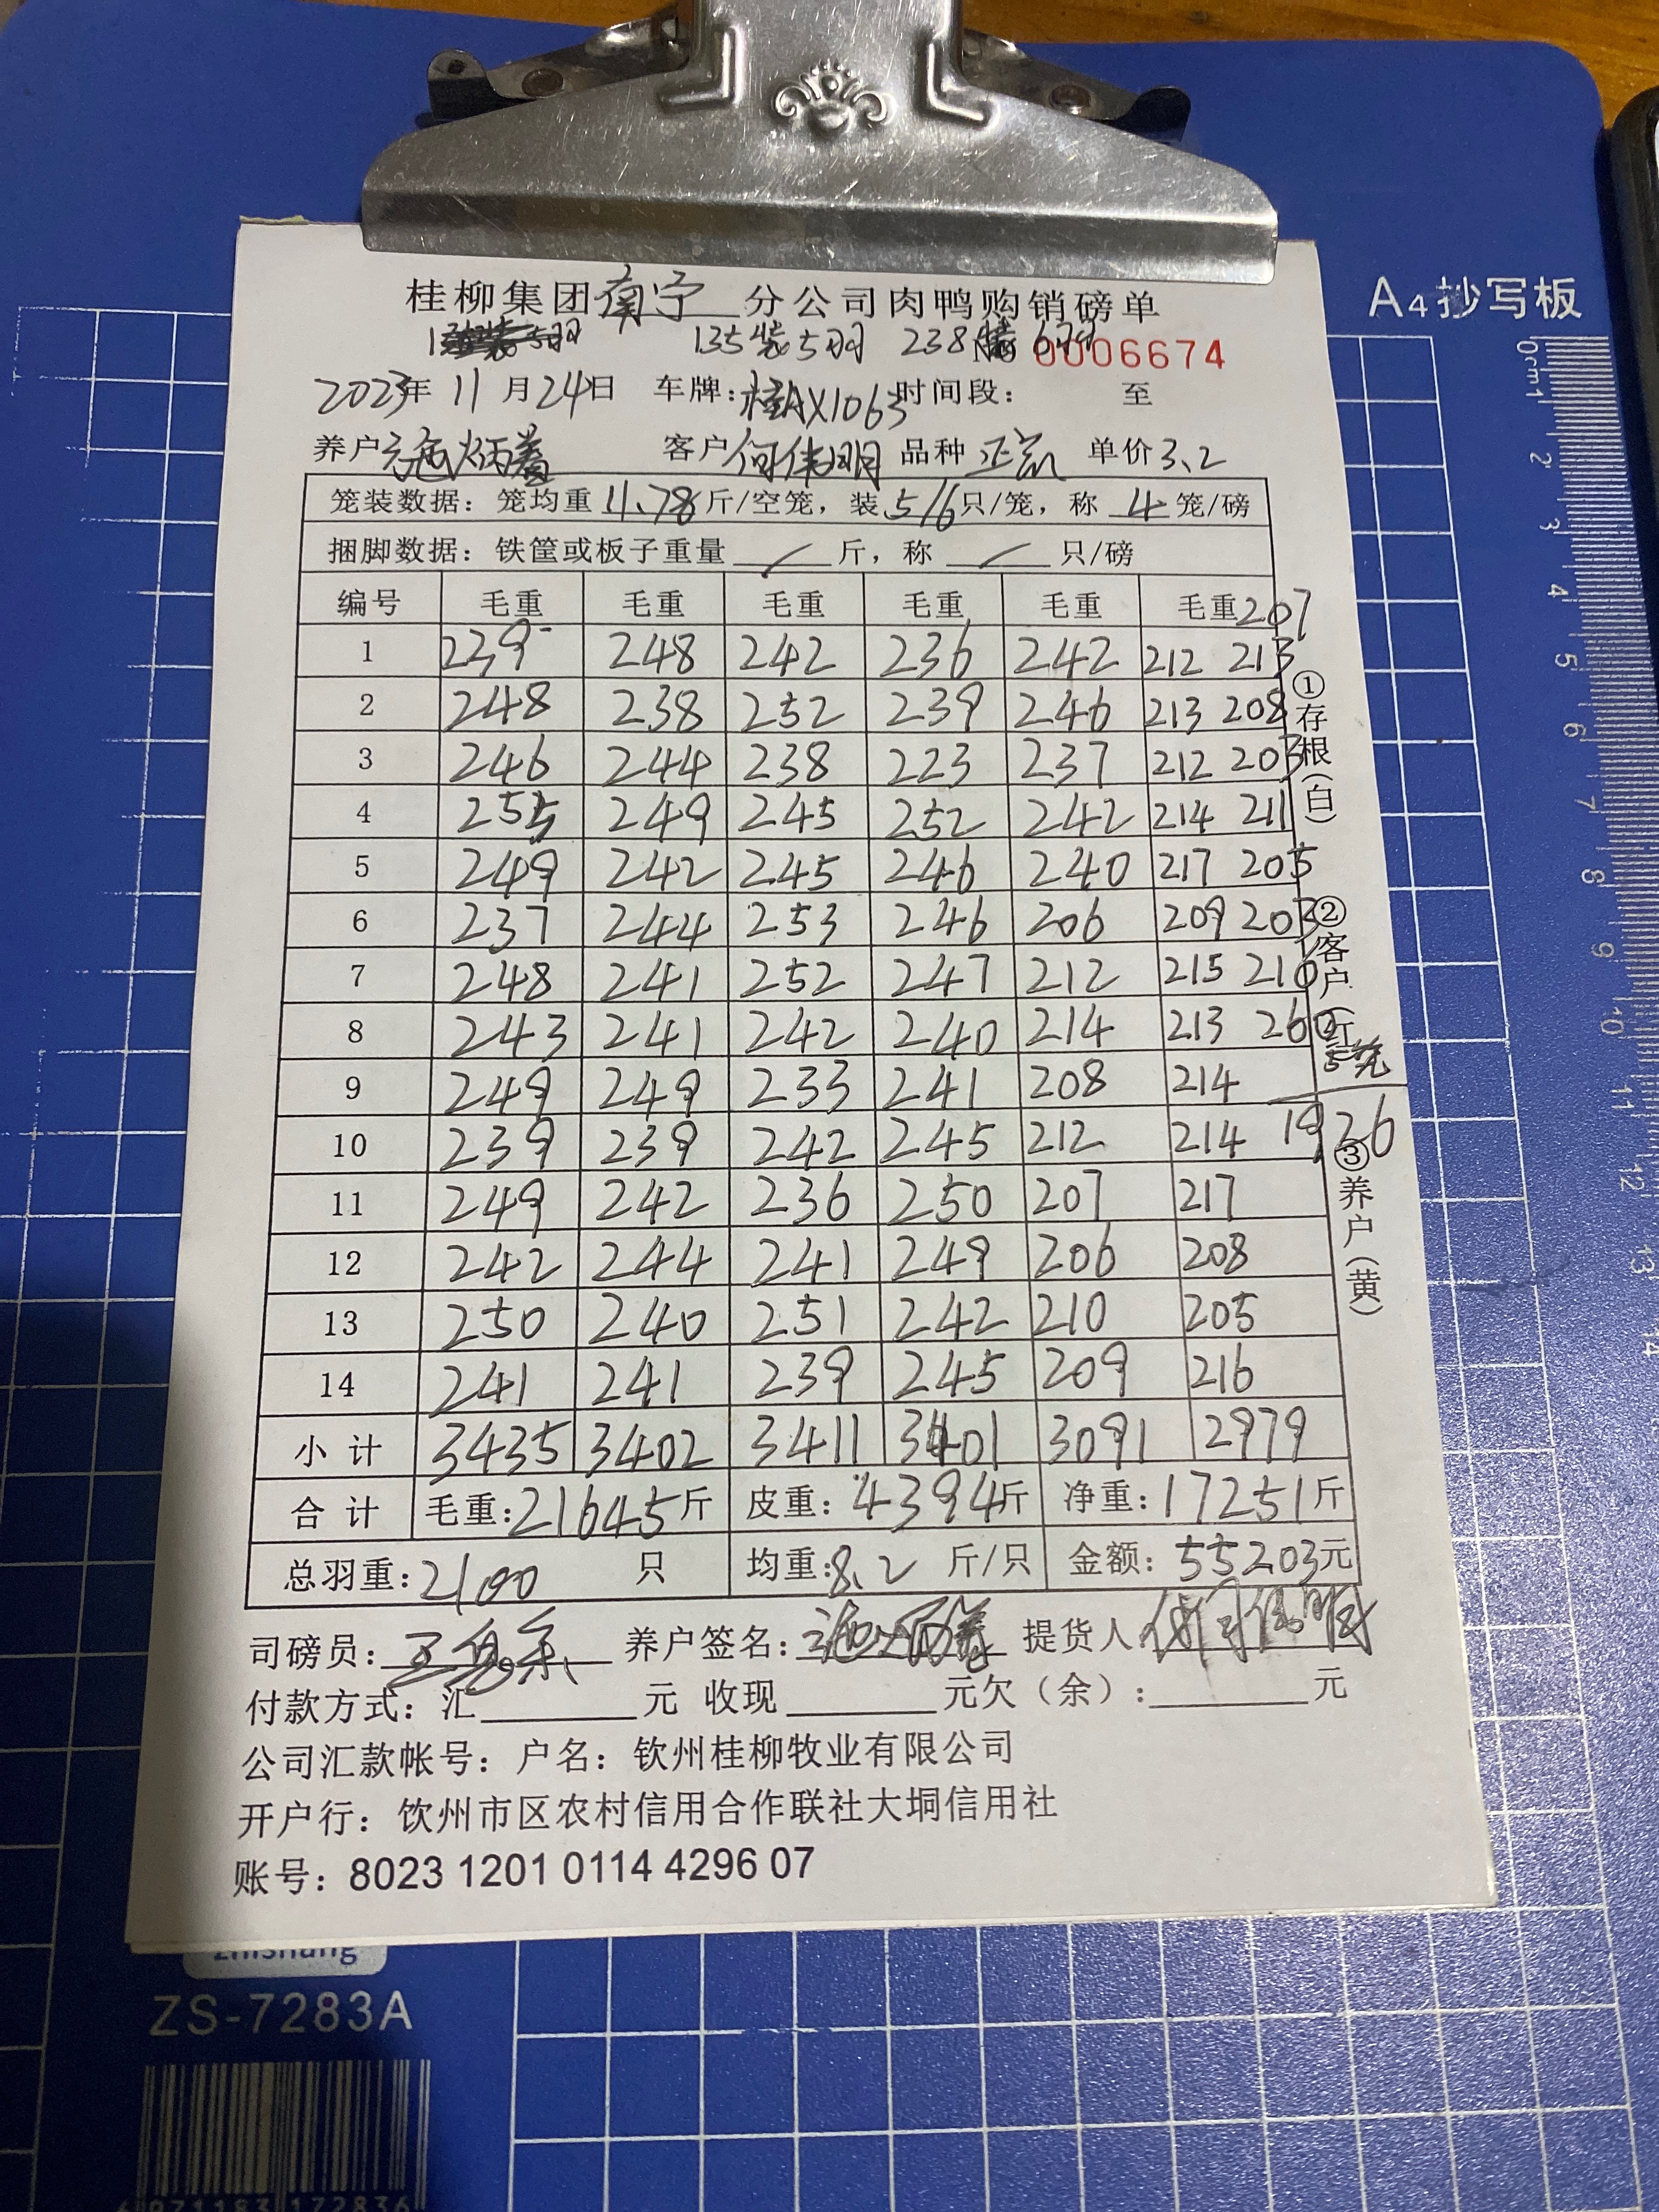 A4抄写板
桂柳集团南宁分公司肉鸭购销磅单
135装5羽 238装6羽 No 0006674
2023年11月24日 车牌:桂AX1063 时间段: 至
养户 客户何伟明 品种 单价3.2
笼装数据:笼均重11.78斤/空笼,装5/6只/笼,称4笼/磅
捆脚数据:铁筐或板子重量 / 斤,称 / 只/磅
编号 毛重 毛重 毛重 毛重 毛重 毛重 207
1 239 248 242 236 242 212 213
2 248 238 252 239 246 213 208
3 246 244 238 223 237 212 203
4 255 249 245 252 242 214 211
5 249 242 245 246 240 217 205
6 237 244 253 246 206 209 203
7 248 241 252 247 212 215 210
8 243 241 242 240 214 213 260
5笼
9 249 249 233 241 208 214
10 239 239 242 245 212 214 1926
11 249 242 236 250 207 217
12 242 244 241 249 206 208
13 250 240 251 242 210 205
14 241 241 239 245 209 216
小计 3435 3402 3411 3401 3091 2979
合计 毛重:21645斤 皮重:4394斤 净重:17251斤
总羽重:2100 只 均重:8.2 斤/只 金额:55203元
①存根(白)
②客户
③养户(黄)
司磅员: 养户签名: 提货人:何伟明
付款方式:汇 元 收现 元欠(余): 元
公司汇款帐号:户名:钦州桂柳牧业有限公司
开户行:饮州市区农村信用合作联社大垌信用社
账号:8023 1201 0114 4296 07
zhishang
ZS-7283A
6 971183 172836
0cm1 2 3 4 5 6 7 8 9 10 11 12 13 14